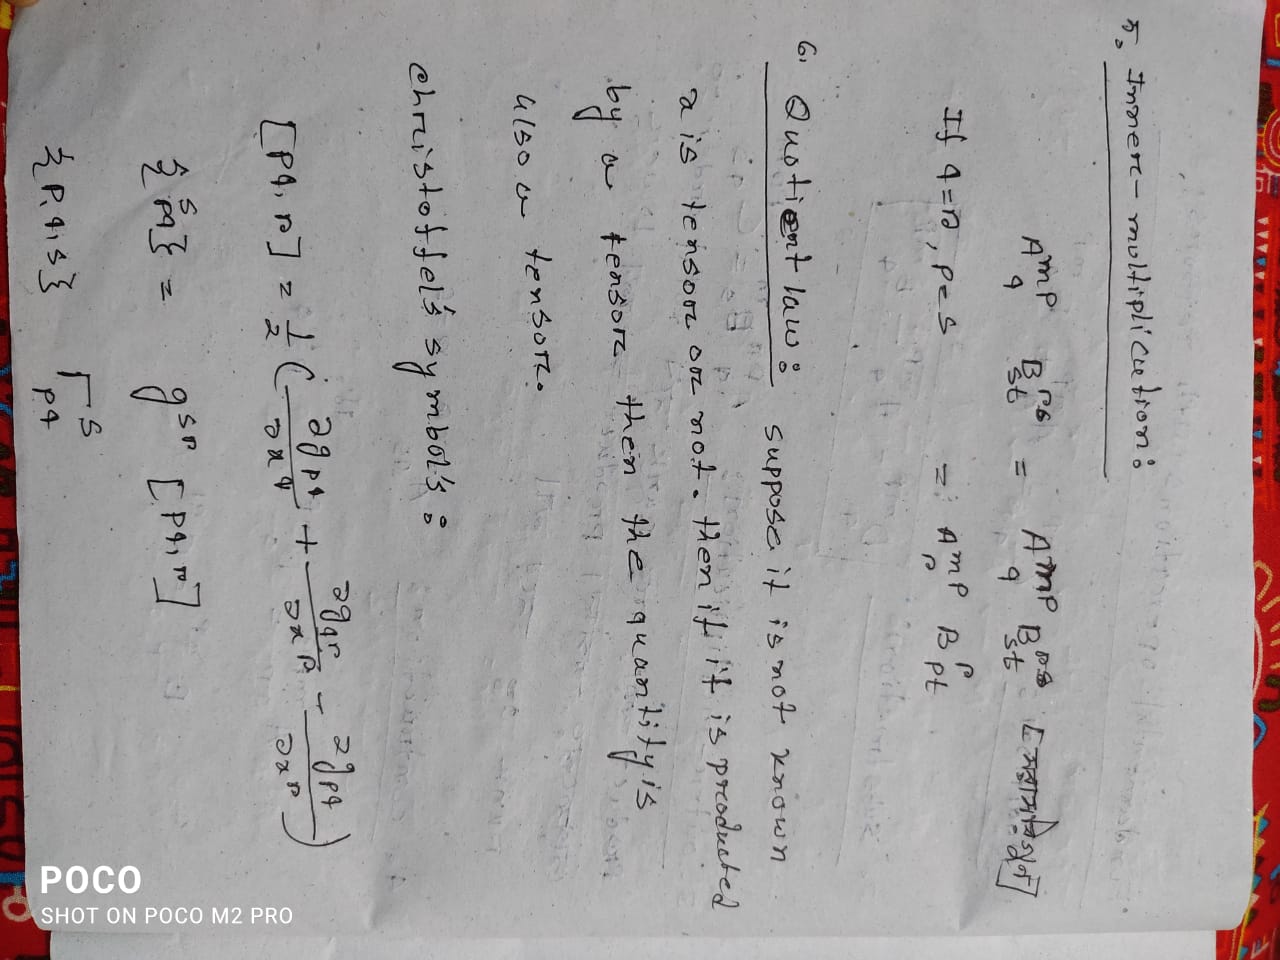 ৫. Inner-multiplication:
A^{mp}_{q} B^{rs}_{st} = A^{mp}_{q} B^{rs}_{st}
If q=r, p=s = A^{mp}_{r} B^{r}_{pt}
6. Quotient law: suppose it is not known
x is tensor or not. then if it is producted
by a tensor then the quantity is
also a tensor.
christoffel's symbol's:
[pq, r] = 1/2 (∂g_{pq}/∂x^{q} + ∂g_{qr}/∂x^{p} - ∂g_{pq}/∂x^{r})
{^{s}_{pq}} = g^{sr} [pq, r]
{p, q, s} Γ^{s}_{pq}
POCO
SHOT ON POCO M2 PRO